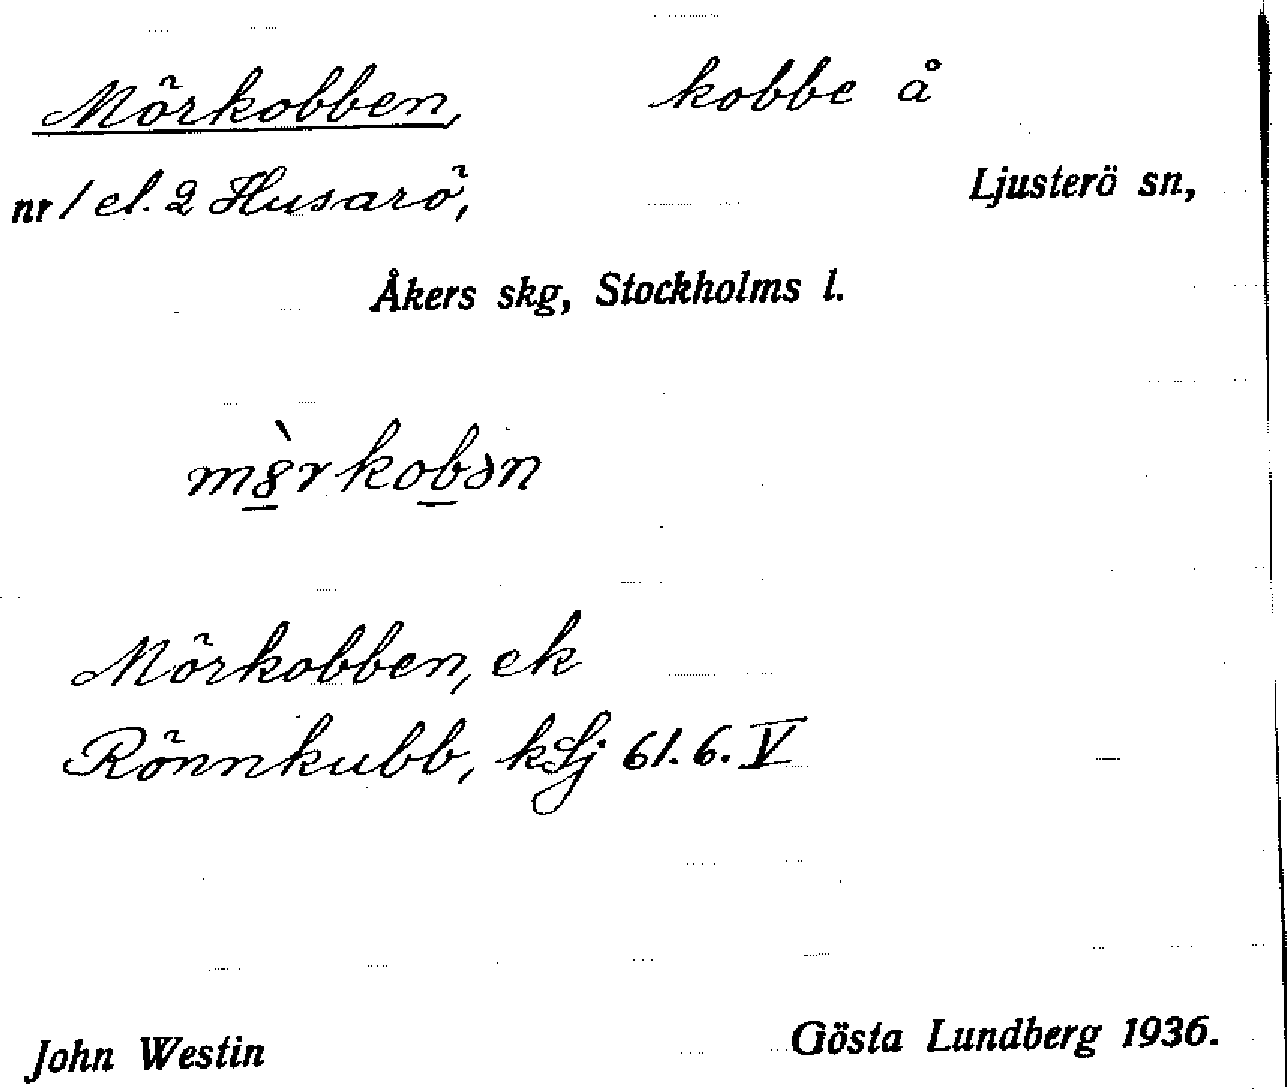 Mörkobben, kobbe å
nr 1 el. 2 Husarö, Ljusterö sn,
Åkers skg, Stockholms l.
Mörkobben, ek
Rönnkubb, kLj 61.6.V
John Westin Gösta Lundberg 1936.